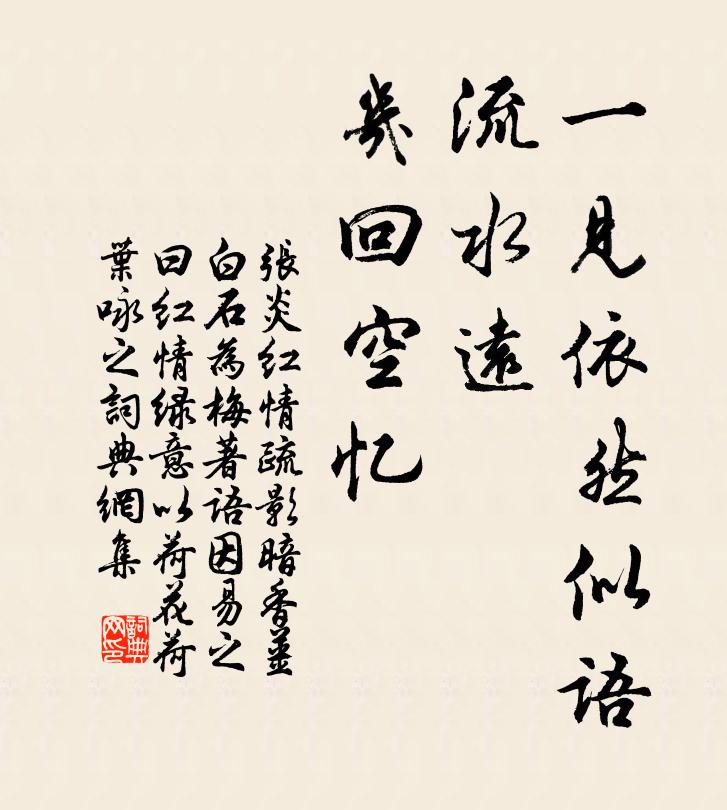 一見依然似語
流水遠
幾回空忆
張炎红情疏影暗香薑
白石為梅著語因易之
曰红情緑意以荷花荷
葉咏之詞典網集
詞典網印